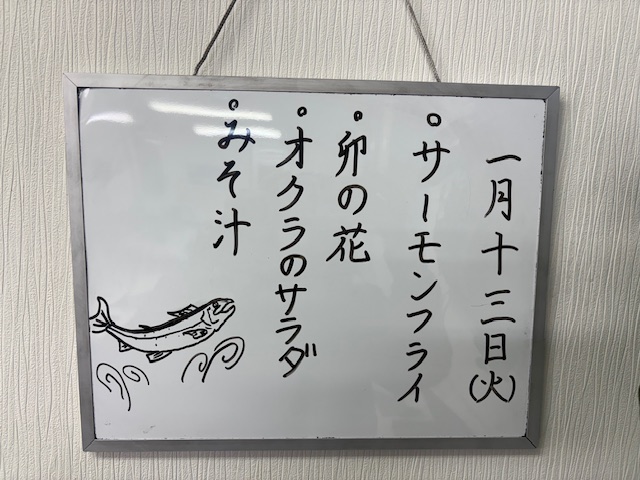 一月十三日(火)
○サーモンフライ
○卯の花
○オクラのサラダ
○みそ汁